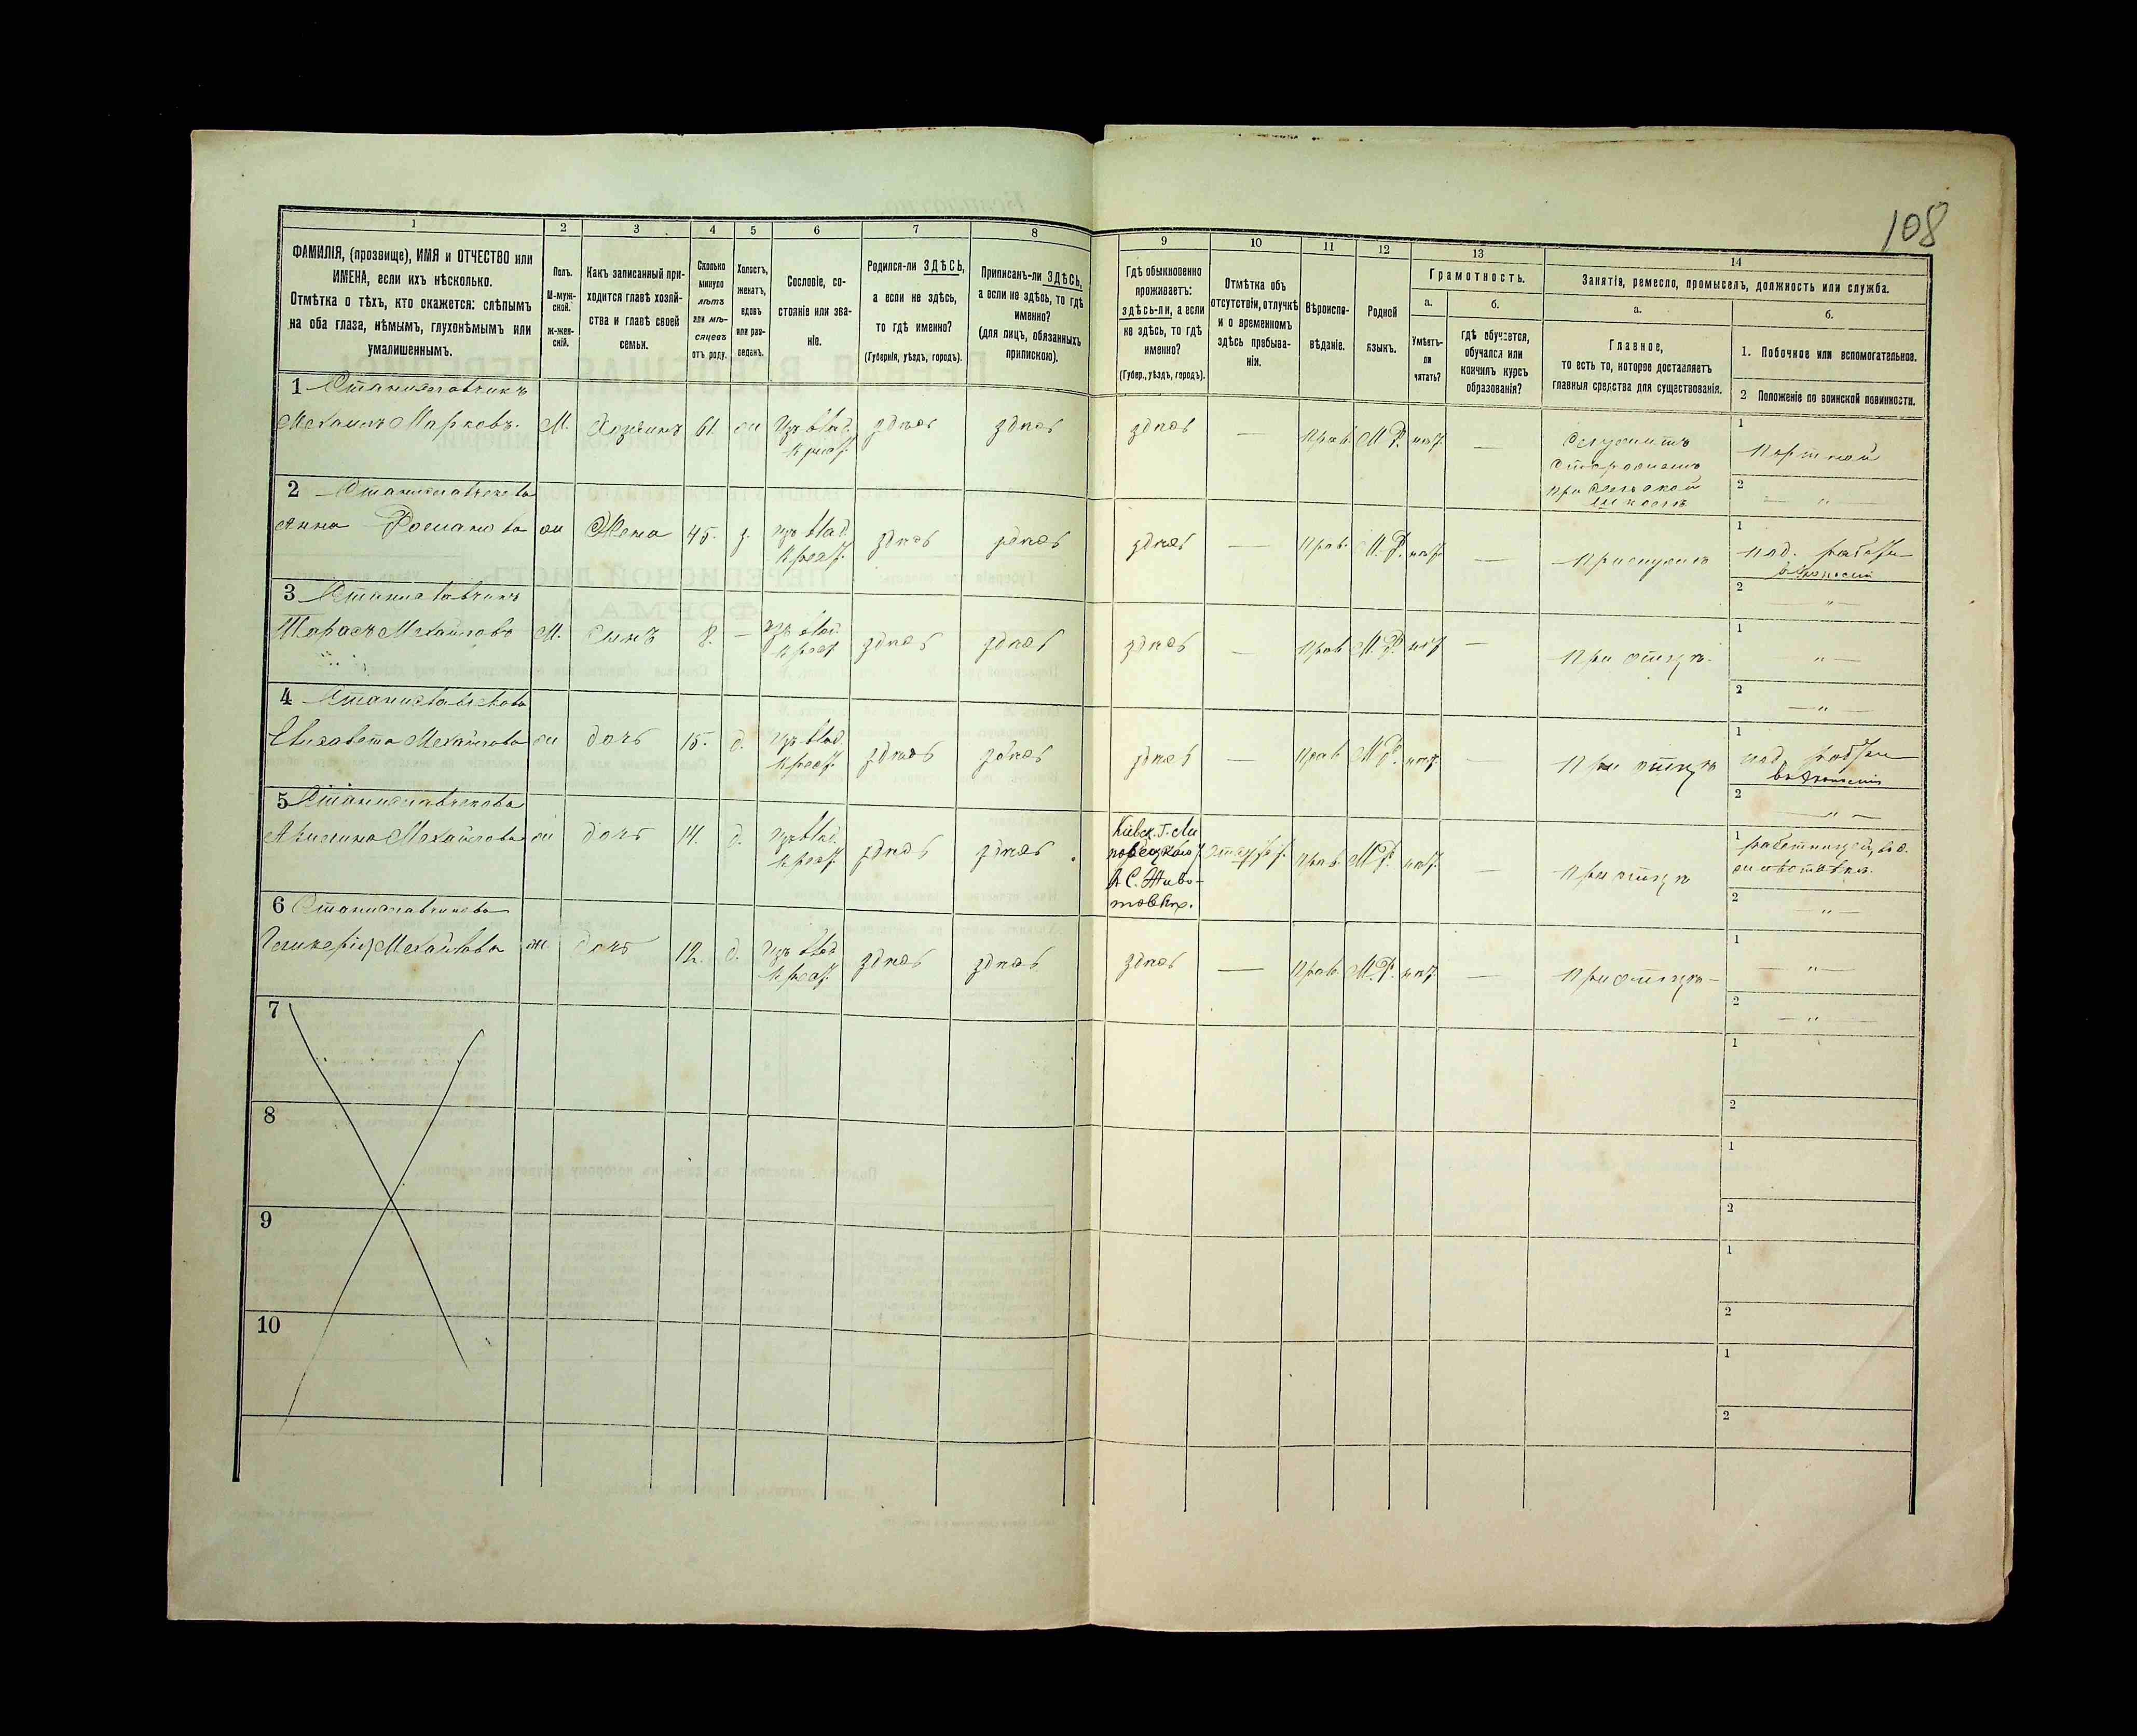 108
1
ФАМИЛІЯ, (прозвище), ИМЯ и ОТЧЕСТВО или
ИМЕНА, если ихъ нѣсколько.
Отмѣтка о тѣхъ, кто окажется: слѣпымъ
на оба глаза, нѣмымъ, глухонѣмымъ или
умалишеннымъ.
2
Полъ.
М-муж-
ской.
Ж-жен-
скій.
3
Какъ записанный при-
ходится главѣ хозяй-
ства и главѣ своей
семьи.
4
Сколько
минуло
лѣтъ
или мѣ-
сяцевъ
отъ роду.
5
Холостъ,
женатъ,
вдовъ
или раз-
веденъ.
6
Сословіе, со-
стояніе или зва-
ніе.
7
Родился-ли ЗДѢСЬ,
а если не здѣсь,
то гдѣ именно?
(Губернія, уѣздъ, городъ).
8
Приписанъ-ли ЗДѢСЬ,
а если не здѣсь, то гдѣ
именно?
(для лицъ, обязанныхъ
припискою).
9
Гдѣ обыкновенно
проживаетъ:
здѣсь-ли, а если
не здѣсь, то гдѣ
именно?
(Губер., уѣздъ, городъ).
10
Отмѣтка объ
отсутствіи, отлучкѣ
и о временномъ
здѣсь пребыва-
ніи.
11
Вѣроиспо-
вѣданіе.
12
Родной
языкъ.
13
Грамотность.
а.
Умѣетъ-
ли
читать?
б.
Гдѣ обучается,
обучался или
кончилъ курсъ
образованія?
14
Занятія, ремесло, промыселъ, должность или служба.
а.
Главное,
то есть то, которое доставляетъ
главныя средства для существованія.
б.
1. Побочное или вспомогательное.
2 Положеніе по воинской повинности.
1 Станиславчикъ
Михаилъ Марковъ. М. Хозяинъ 61. ж Изъ влад. крест. здѣсь здѣсь здѣсь — Прав. М.Р. нѣт — Служитъ
сторожемъ
при сельской
школѣ
1 Портной
2 — „ —
2 Станиславчикова
Анна Романова ж Жена 45. з. изъ влад. крест. здѣсь здѣсь здѣсь — Прав. М.Р. нѣт — При мужѣ
1 под. работы
в экономіи
2 — „ —
3 Станиславчикъ
Тарасъ Михайловъ М. Сынъ 8. — изъ влад. крест здѣсь здѣсь здѣсь — Прав М.Р. нѣт — При отцѣ.
1 — „ —
2 — „ —
4 Станиславчикова
Елизавета Михайлова ж дочь 15. д. Изъ влад. крест. здѣсь здѣсь здѣсь — Прав М.Р. нѣт — При отцѣ
1 под работы
в экономіи
2 — „ —
5 Станиславчикова
Акилина Михайлова ж дочь 14. д. Изъ влад. крест. здѣсь здѣсь
Кіевск. Г. Ли
повецкаго у.
в С. Живо-
товкѣ.
Прав. М.Р. нѣт. — При отцѣ
1 работницей, в с.
Животовкѣ
2 — „ —
6 Станиславчикова
Гликерія Михайлова ж. дочь 12. д. Изъ влад крест. здѣсь здѣсь здѣсь — Прав. М.Р. нѣт — При отцѣ —
1 — „ —
2 — „ —
7
1
2
8
1
2
9
1
2
10
1
2